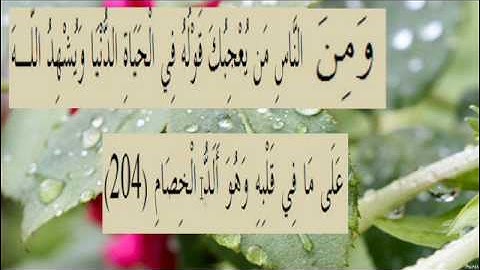 وَمِنَ النَّاسِ مَن يُعْجِبُكَ قَوْلُهُ فِي الْحَيَاةِ الدُّنْيَا وَيُشْهِدُ اللَّهَ
عَلَى مَا فِي قَلْبِهِ وَهُوَ أَلَدُّ الْخِصَامِ (204)